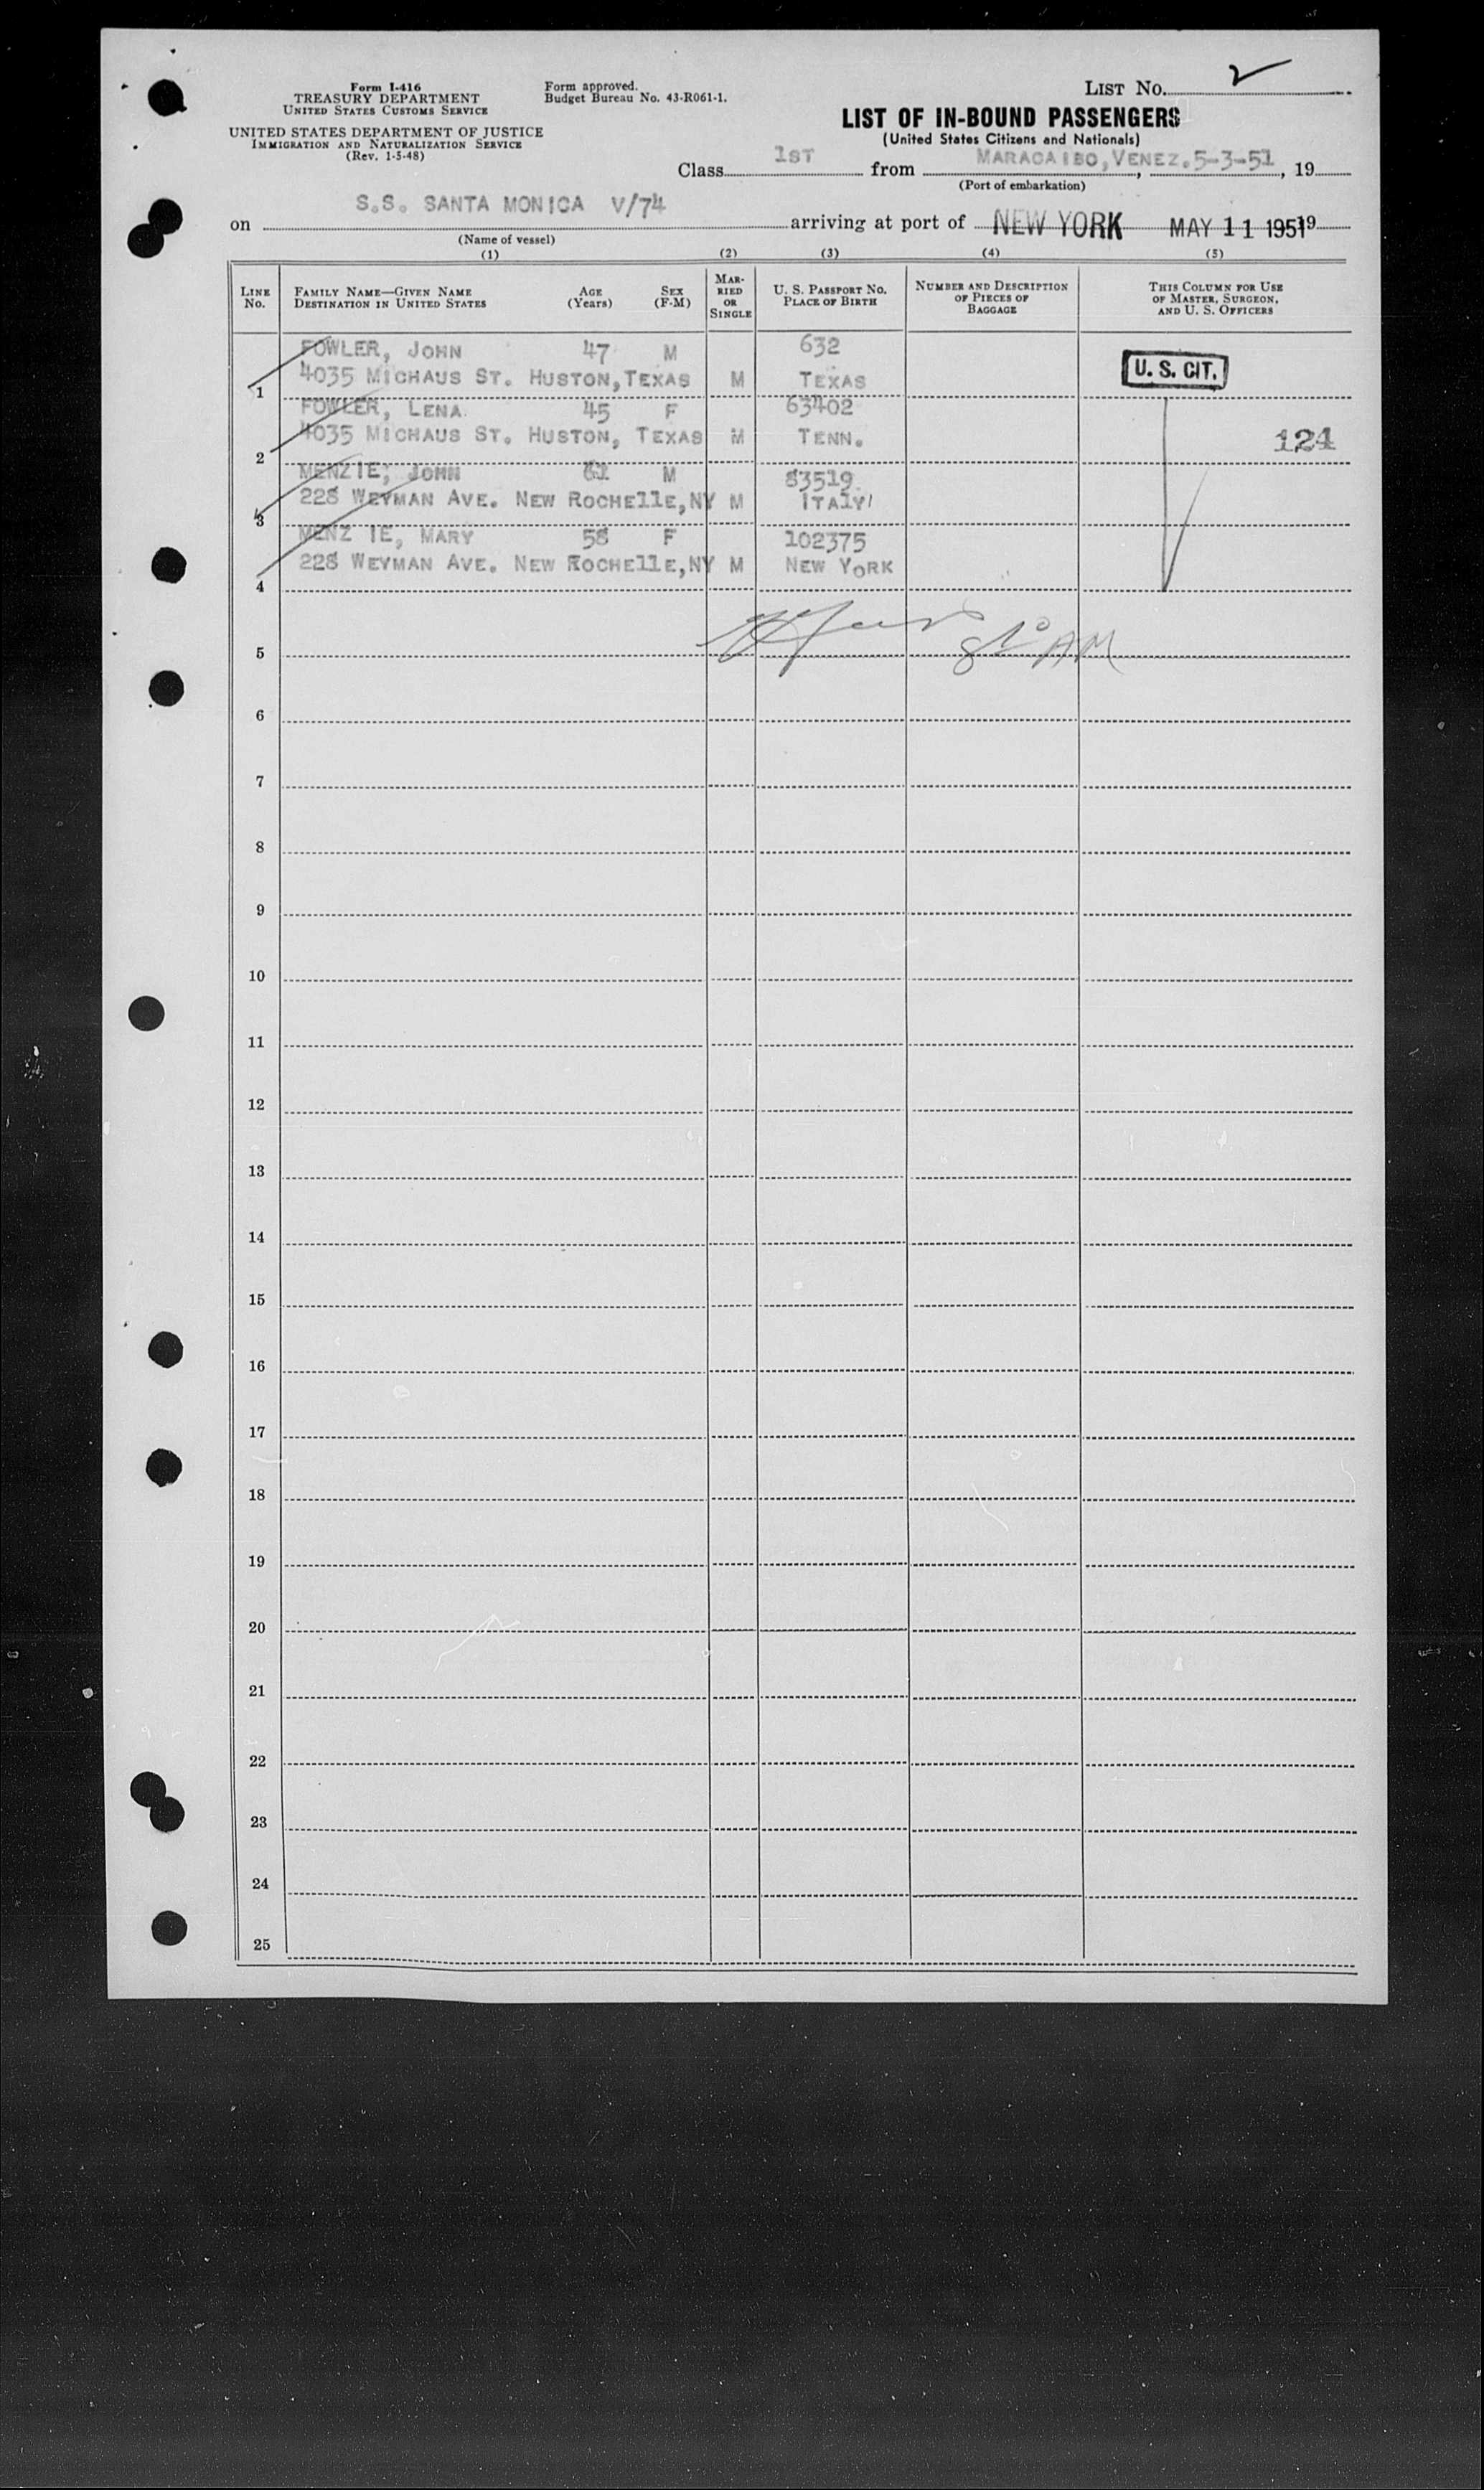 Form I-416
TREASURY DEPARTMENT
UNITED STATES CUSTOMS SERVICE
UNITED STATES DEPARTMENT OF JUSTICE
IMMIGRATION AND NATURALIZATION SERVICE
(Rev. 1-5-48)
Form approved.
Budget Bureau No. 43-R061-1.
LIST No. 2
LIST OF IN-BOUND PASSENGERS
(United States Citizens and Nationals)
Class 1ST from MARACAIBO, VENEZ. 5-3-51, 19
(Port of embarkation)
on S.S. SANTA MONICA V/74 arriving at port of NEW YORK MAY 11 1951 19
(Name of vessel)
(1) (2) (3) (4) (5)
LINE No. FAMILY NAME—GIVEN NAME DESTINATION IN UNITED STATES AGE (Years) SEX (F-M) MARRIED OR SINGLE U. S. PASSPORT No. PLACE OF BIRTH NUMBER AND DESCRIPTION OF PIECES OF BAGGAGE THIS COLUMN FOR USE OF MASTER, SURGEON, AND U. S. OFFICERS
FOWLER, JOHN 47 M 632
1 4035 MICHAUS ST. HUSTON, TEXAS M TEXAS U. S. CIT.
FOWLER, LENA 45 F 63402
2 4035 MICHAUS ST. HUSTON, TEXAS M TENN. 124
MENZIE, JOHN 61 M 83519
3 228 WEYMAN AVE. NEW ROCHElle, NY M ITAlY
MENZ IE, MARY 58 F 102375
4 228 WEYMAN AVE. NEW ROCHElle, NY M NEW YORK
5 8 10 AM
6
7
8
9
10
11
12
13
14
15
16
17
18
19
20
21
22
23
24
25